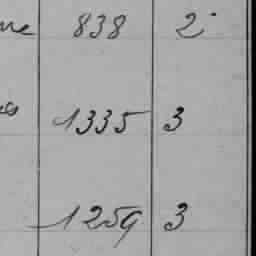 838 2
1335 3
1259 3